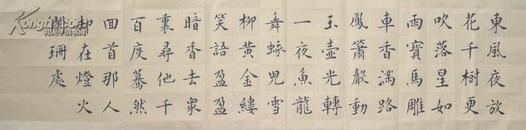 東風夜放
花千樹更
吹落星如
雨寶馬雕
車香滿路
鳳簫聲動
玉壺光轉
一夜魚龍
舞蛾兒雪
柳黄金縷
笑語盈盈
暗香去衆
裏尋他千
百度驀然
回首那人
却在燈火
闌珊處